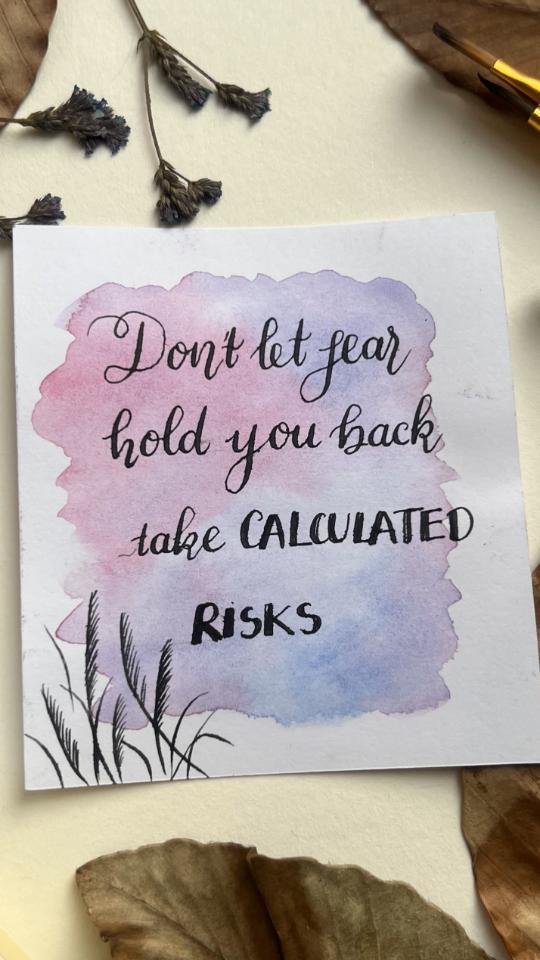 Don't let fear
hold you back
take CALCULATED
RISKS